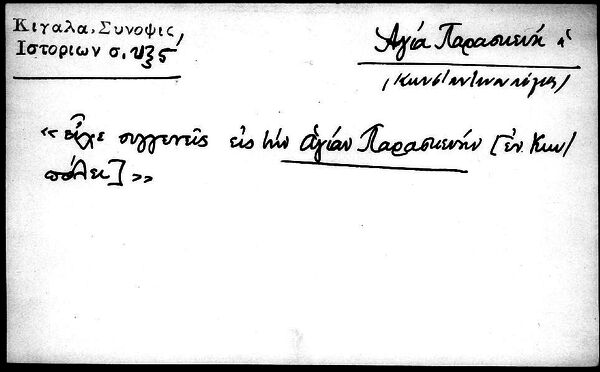 Κιγαλα, Συνοψις,
Ιστοριων σ. υξς
Ἁγία Παρασκευή ἡ
(Κωνσταντινουπόλεως)
«εἶχε συγγενεῖς εἰς τὴν ἁγίαν Παρασκευήν [ἐν Κων/
πόλει]»